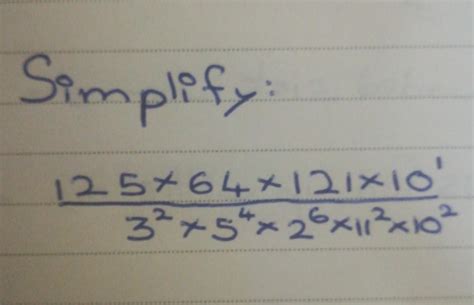 Simplify:
125×64×121×10¹
3²×5⁴×2⁶×11²×10²